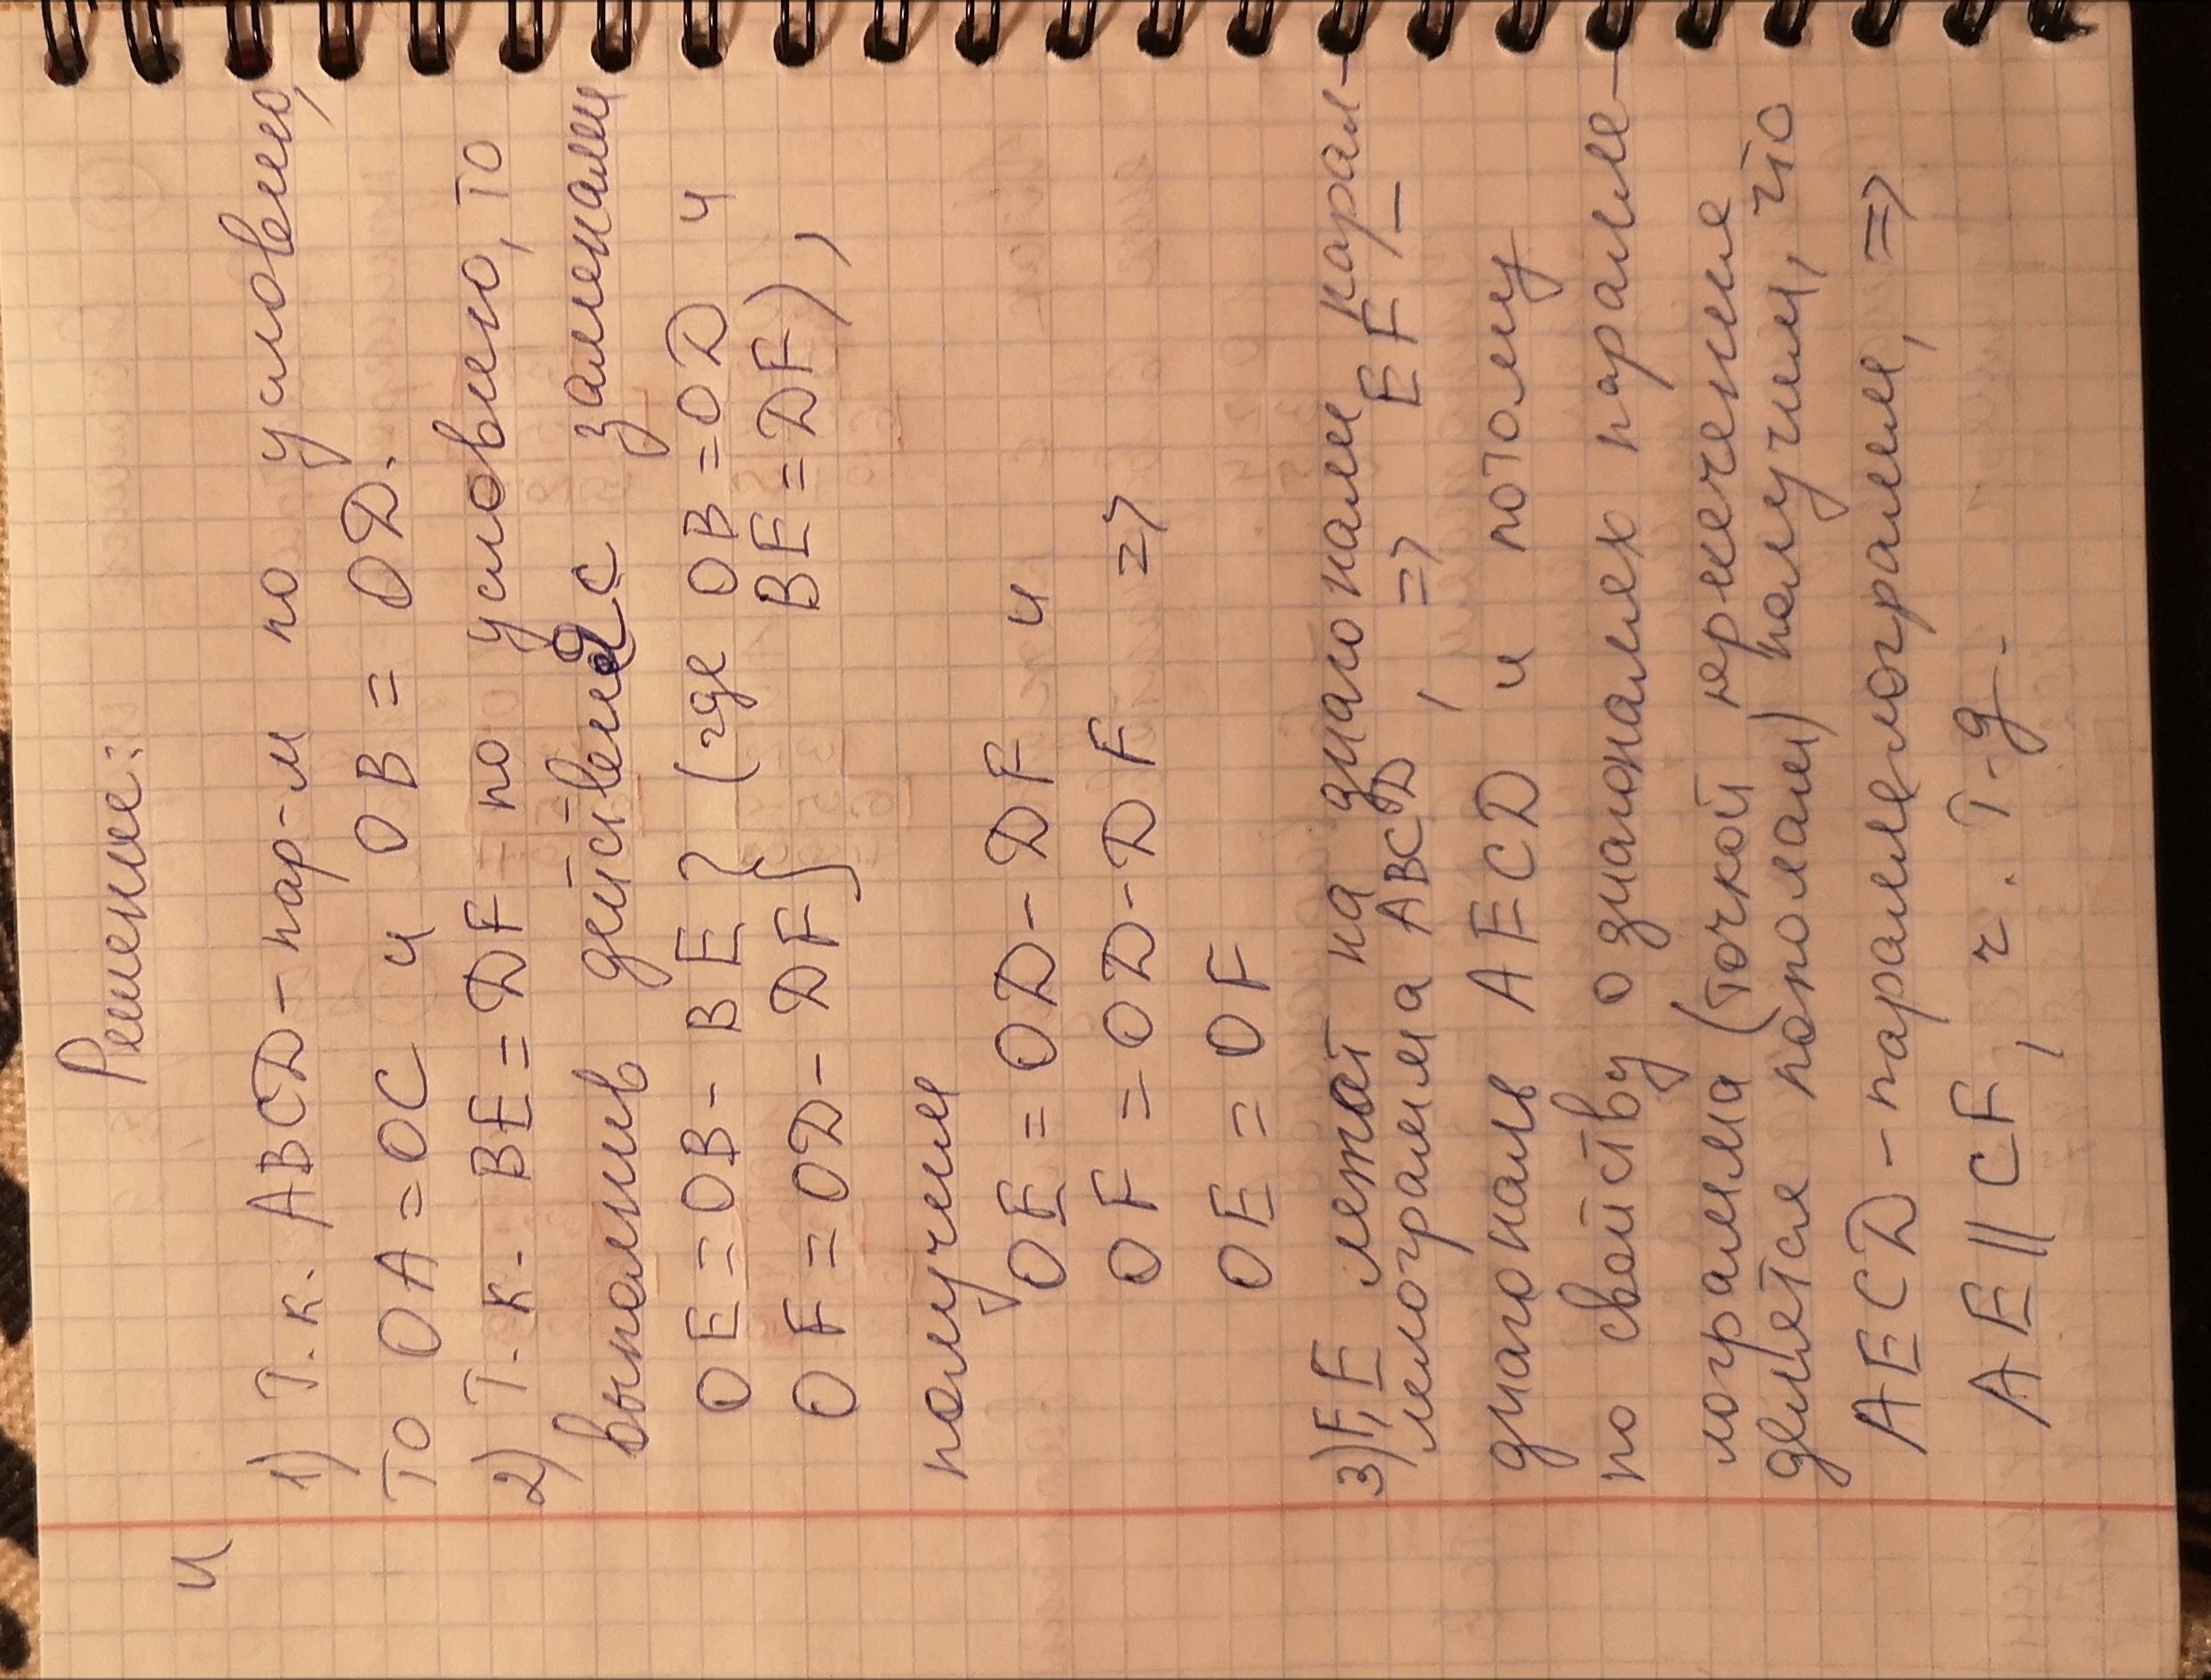 Решение:
и
1) Т.к. ABCD - пар-м по условию,
то OA = OC и OB = OD.
2) Т.к. BE = DF по условию, то
выполнив действие с заменами
OE = OB - BE } (где OB = OD и
OF = OD - DF } BE = DF),
получим
OE = OD - DF и
OF = OD - DF =>
OE = OF
3) F, E лежат на диагонали парал-
лелограмма ABCD, => EF -
диагональ AECD и потому
по свойству о диагоналях паралле-
лограмма (точкой пересечения
делится пополам) получим, что
AECD - параллелограмм, =>
AE || CF, ч. т. д.